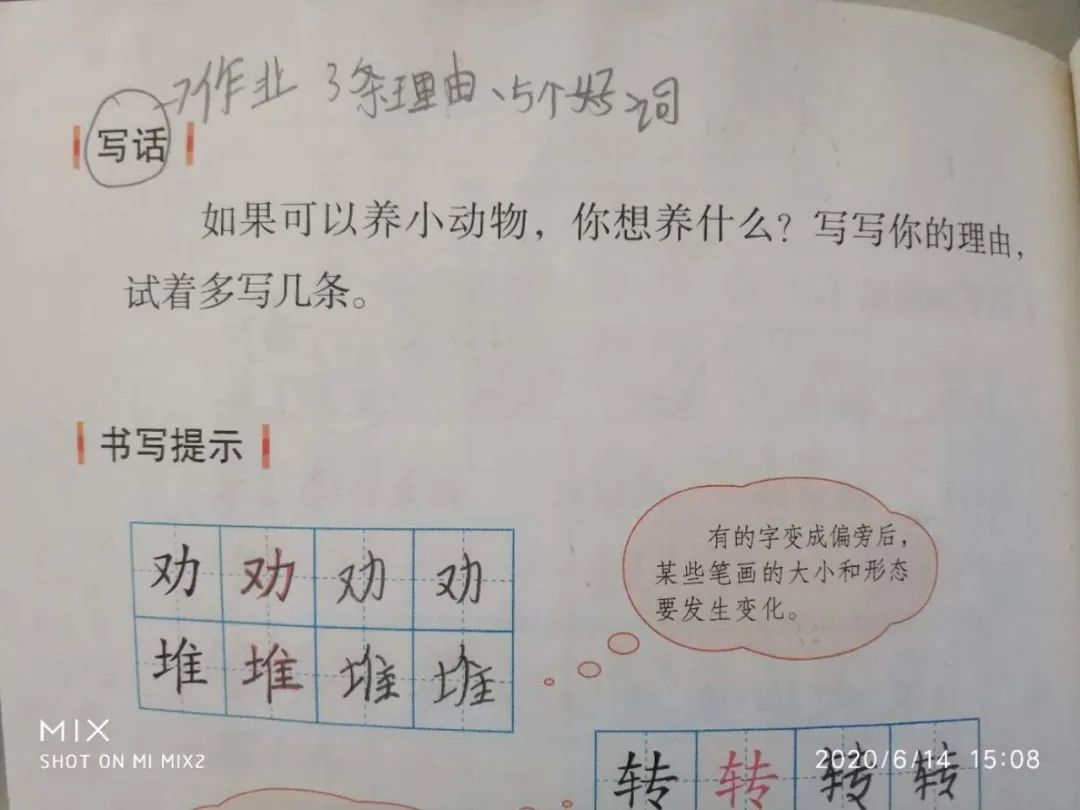 作业 3条理由、5个好词
写话
如果可以养小动物，你想养什么？写写你的理由，
试着多写几条。
书写提示
有的字变成偏旁后，
某些笔画的大小和形态
要发生变化。
劝 劝 劝 劝
堆 堆 堆 堆
转 转 转 转
MIX
SHOT ON MI MIX2
2020/6/14 15:08